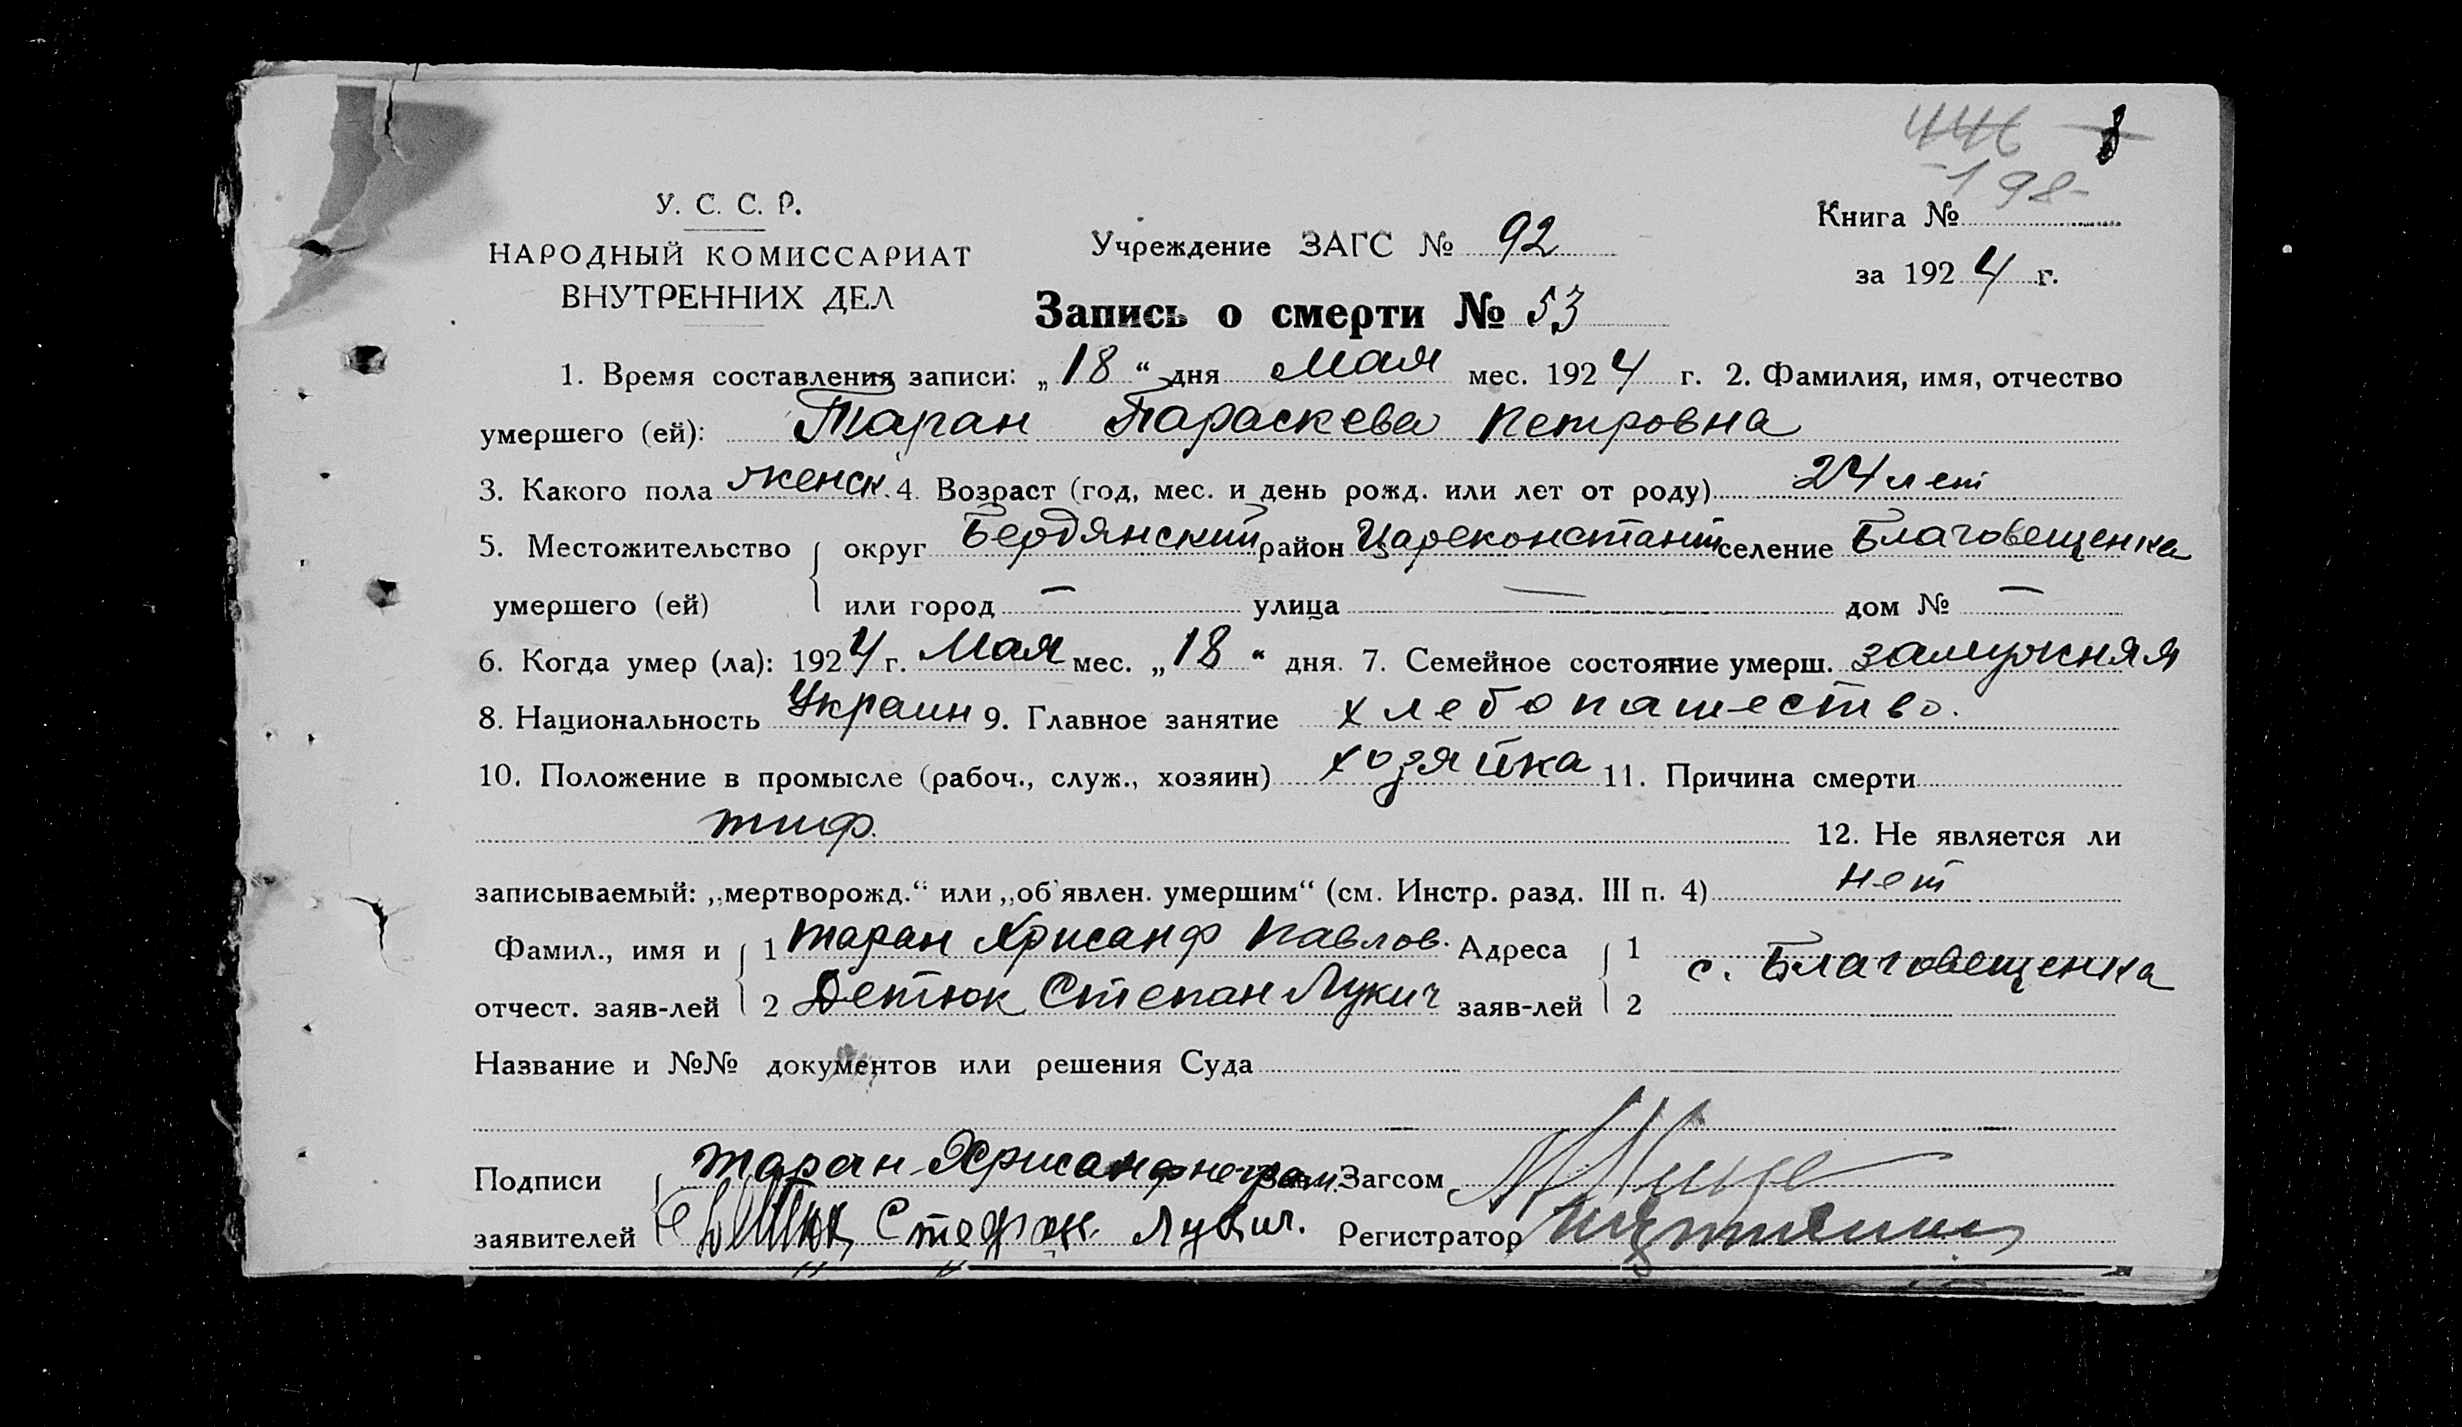 446 8
-198-
У. С. С. Р.
НАРОДНЫЙ КОМИССАРИАТ
ВНУТРЕННИХ ДЕЛ
Учреждение ЗАГС № 92
Книга №
за 1924 г.
Запись о смерти № 53
1. Время составления записи: „18“ дня Мая мес. 1924 г. 2. Фамилия, имя, отчество
умершего (ей): Таран Параскева Петровна
3. Какого пола женск. 4. Возраст (год, мес. и день рожд. или лет от роду) 24 лет
5. Местожительство округ Бердянский район Цареконстант селение Благовещенка
умершего (ей) или город — улица — дом № —
6. Когда умер (ла): 1924 г. Мая мес. „18“ дня. 7. Семейное состояние умерш. замужняя
8. Национальность Украин 9. Главное занятие хлебопашество.
10. Положение в промысле (рабоч., служ., хозяин) хозяйка 11. Причина смерти
тиф. 12. Не является ли
записываемый: „мертворожд.“ или „об'явлен. умершим“ (см. Инстр. разд. III п. 4) нет
Фамил., имя и 1 Таран Хрисанф Павлов. Адреса 1
с. Благовещенка
отчест. заяв-лей 2 Детюк Степан Лукич заяв-лей 2
Название и №№ документов или решения Суда
Подписи Таран Хрисанф Загсом
заявителей Регистратор